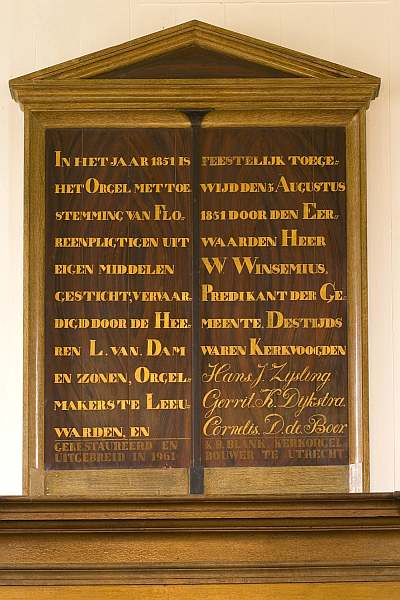 In het jaar 1851 is
het Orgel met toe
stemming van Flo-
reenpligtigen uit
eigen middelen
gesticht, vervaar-
digid door de Hee-
ren L. van. Dam
en zonen, Orgel-
makers te Leeu-
warden, en
GERESTAUREERD EN
UITGEBREID IN 1961
feestelijk toege-
wijd den 3 Augustus
1851 door den Eer-
waarden Heer
W Winsemius,
Predikant der Ge-
meente, Destijds
waren Kerkvoogden
Hans. J. Zijsling
Gerrit. K. Dijkstra
Cornelis. D. de Boer
K.B. BLANK, KERKORGEL
BOUWER TE UTRECHT